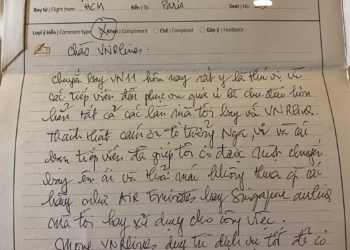 Bay từ | Flight from: HCM Đến | To: Paris
Loại ý kiến | Comment type Khen | Compliment Chê | Complaint Góp ý | Feedback
Chào VNRlines.
Chuyến bay VN11 hôm nay rất ý là thú vị vì
các tiếp viên đã phục vụ quá ư là chu đáo hơn
hẳn tất cả các lần mà tôi bay với VNRlines.
Thành thật cảm ơn tổ trưởng Nga và các
bạn tiếp viên đã giúp tôi có được một chuyến
bay êm ái và thoải mái không thua gì các
hãng như AIR Emirates hay Singapore airlines
mà tôi hay sử dụng cho công việc.
Mong VNRlines duy trì dịch vụ tốt để có